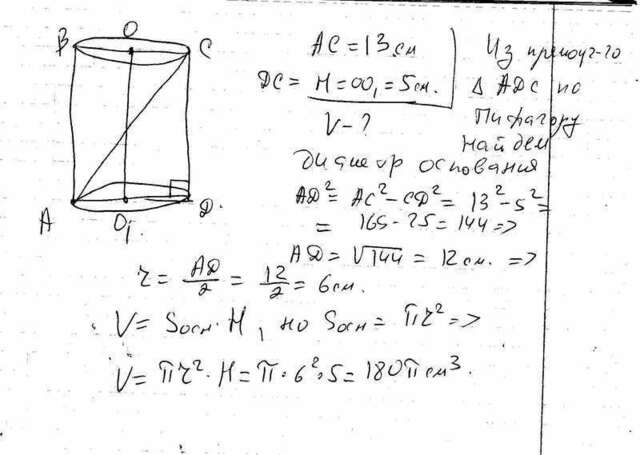 B O C
A O₁ D.
AC = 13 см
DC = H = OO₁ = 5 см.
V - ?
Из прямоуг-го
Δ ADC по
Пифагору
найдем
диаметр основания
AD² = AC² - CD² = 13² - 5² =
= 169 - 25 = 144 =>
AD = √144 = 12 см. =>
r = AD/2 = 12/2 = 6 см.
V = Sосн · H, но Sосн = πr² =>
V = πr² · H = π · 6² · 5 = 180π см³.